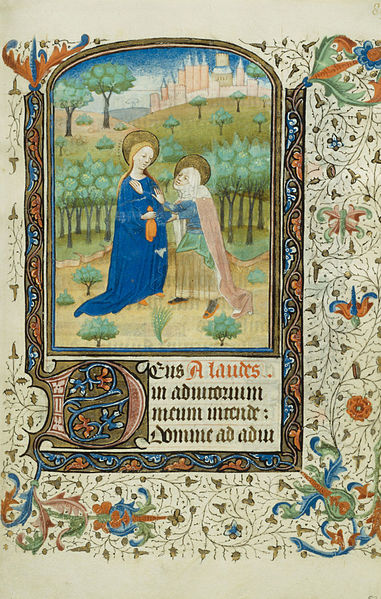 Deus A laudes.
in adiutorium
meum intende:
Domine ad adiu